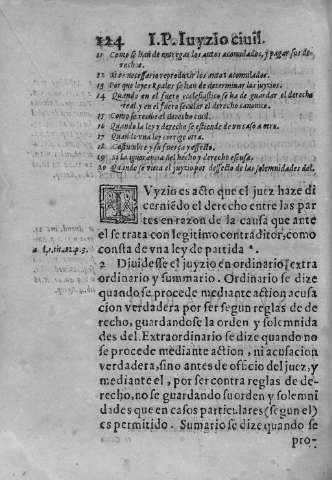 124 I.P. Iuyzio ciuil.
11 Como se han de entregar los autos acomulados, y pagar sus de-
rechos.
12 Si es necessario reproduzir los autos acomulados.
13 Por que leyes Reales se han de determinar los juyzios.
14 Quando en el fuero ecclesiastico se ha de guardar el derecho
real, y en el fuero secular el derecho canonico.
15 Como se recibe el derecho ciuil.
16 Quando la ley y derecho se estiende de vn caso a otro.
17 Quando vna ley corrige otra.
18 Costumbre y su fuerça y effecto.
19 Si la ignorancia del hecho y derecho escusa.
20 Quando se vicia el juyzio por deffecto de las solemnidades del.
IVyzio es acto que el juez haze di
cerniẽdo el derecho entre las par
tes en razon de la causa que ante
el se trata con legitimo contraditor, como
consta de vna ley de partida ª.
a l.1.tit.22.p.3.
2 Diuidesse el juyzio en ordinario, extra
ordinario y summario. Ordinario se dize
quando se procede mediante action acusa
cion verdadera por ser segun reglas de de
recho, guardando se la orden y solemnida
des del. Extraordinario se dize quando no
se procede mediante action, ni acusacion
verdadera, sino antes de officio del juez, y
mediante el, por ser contra reglas de de-
recho, no se guardando su orden y solemni
dades que en casos particulares (segun el)
es permitido. Sumario se dize quando se
pro-